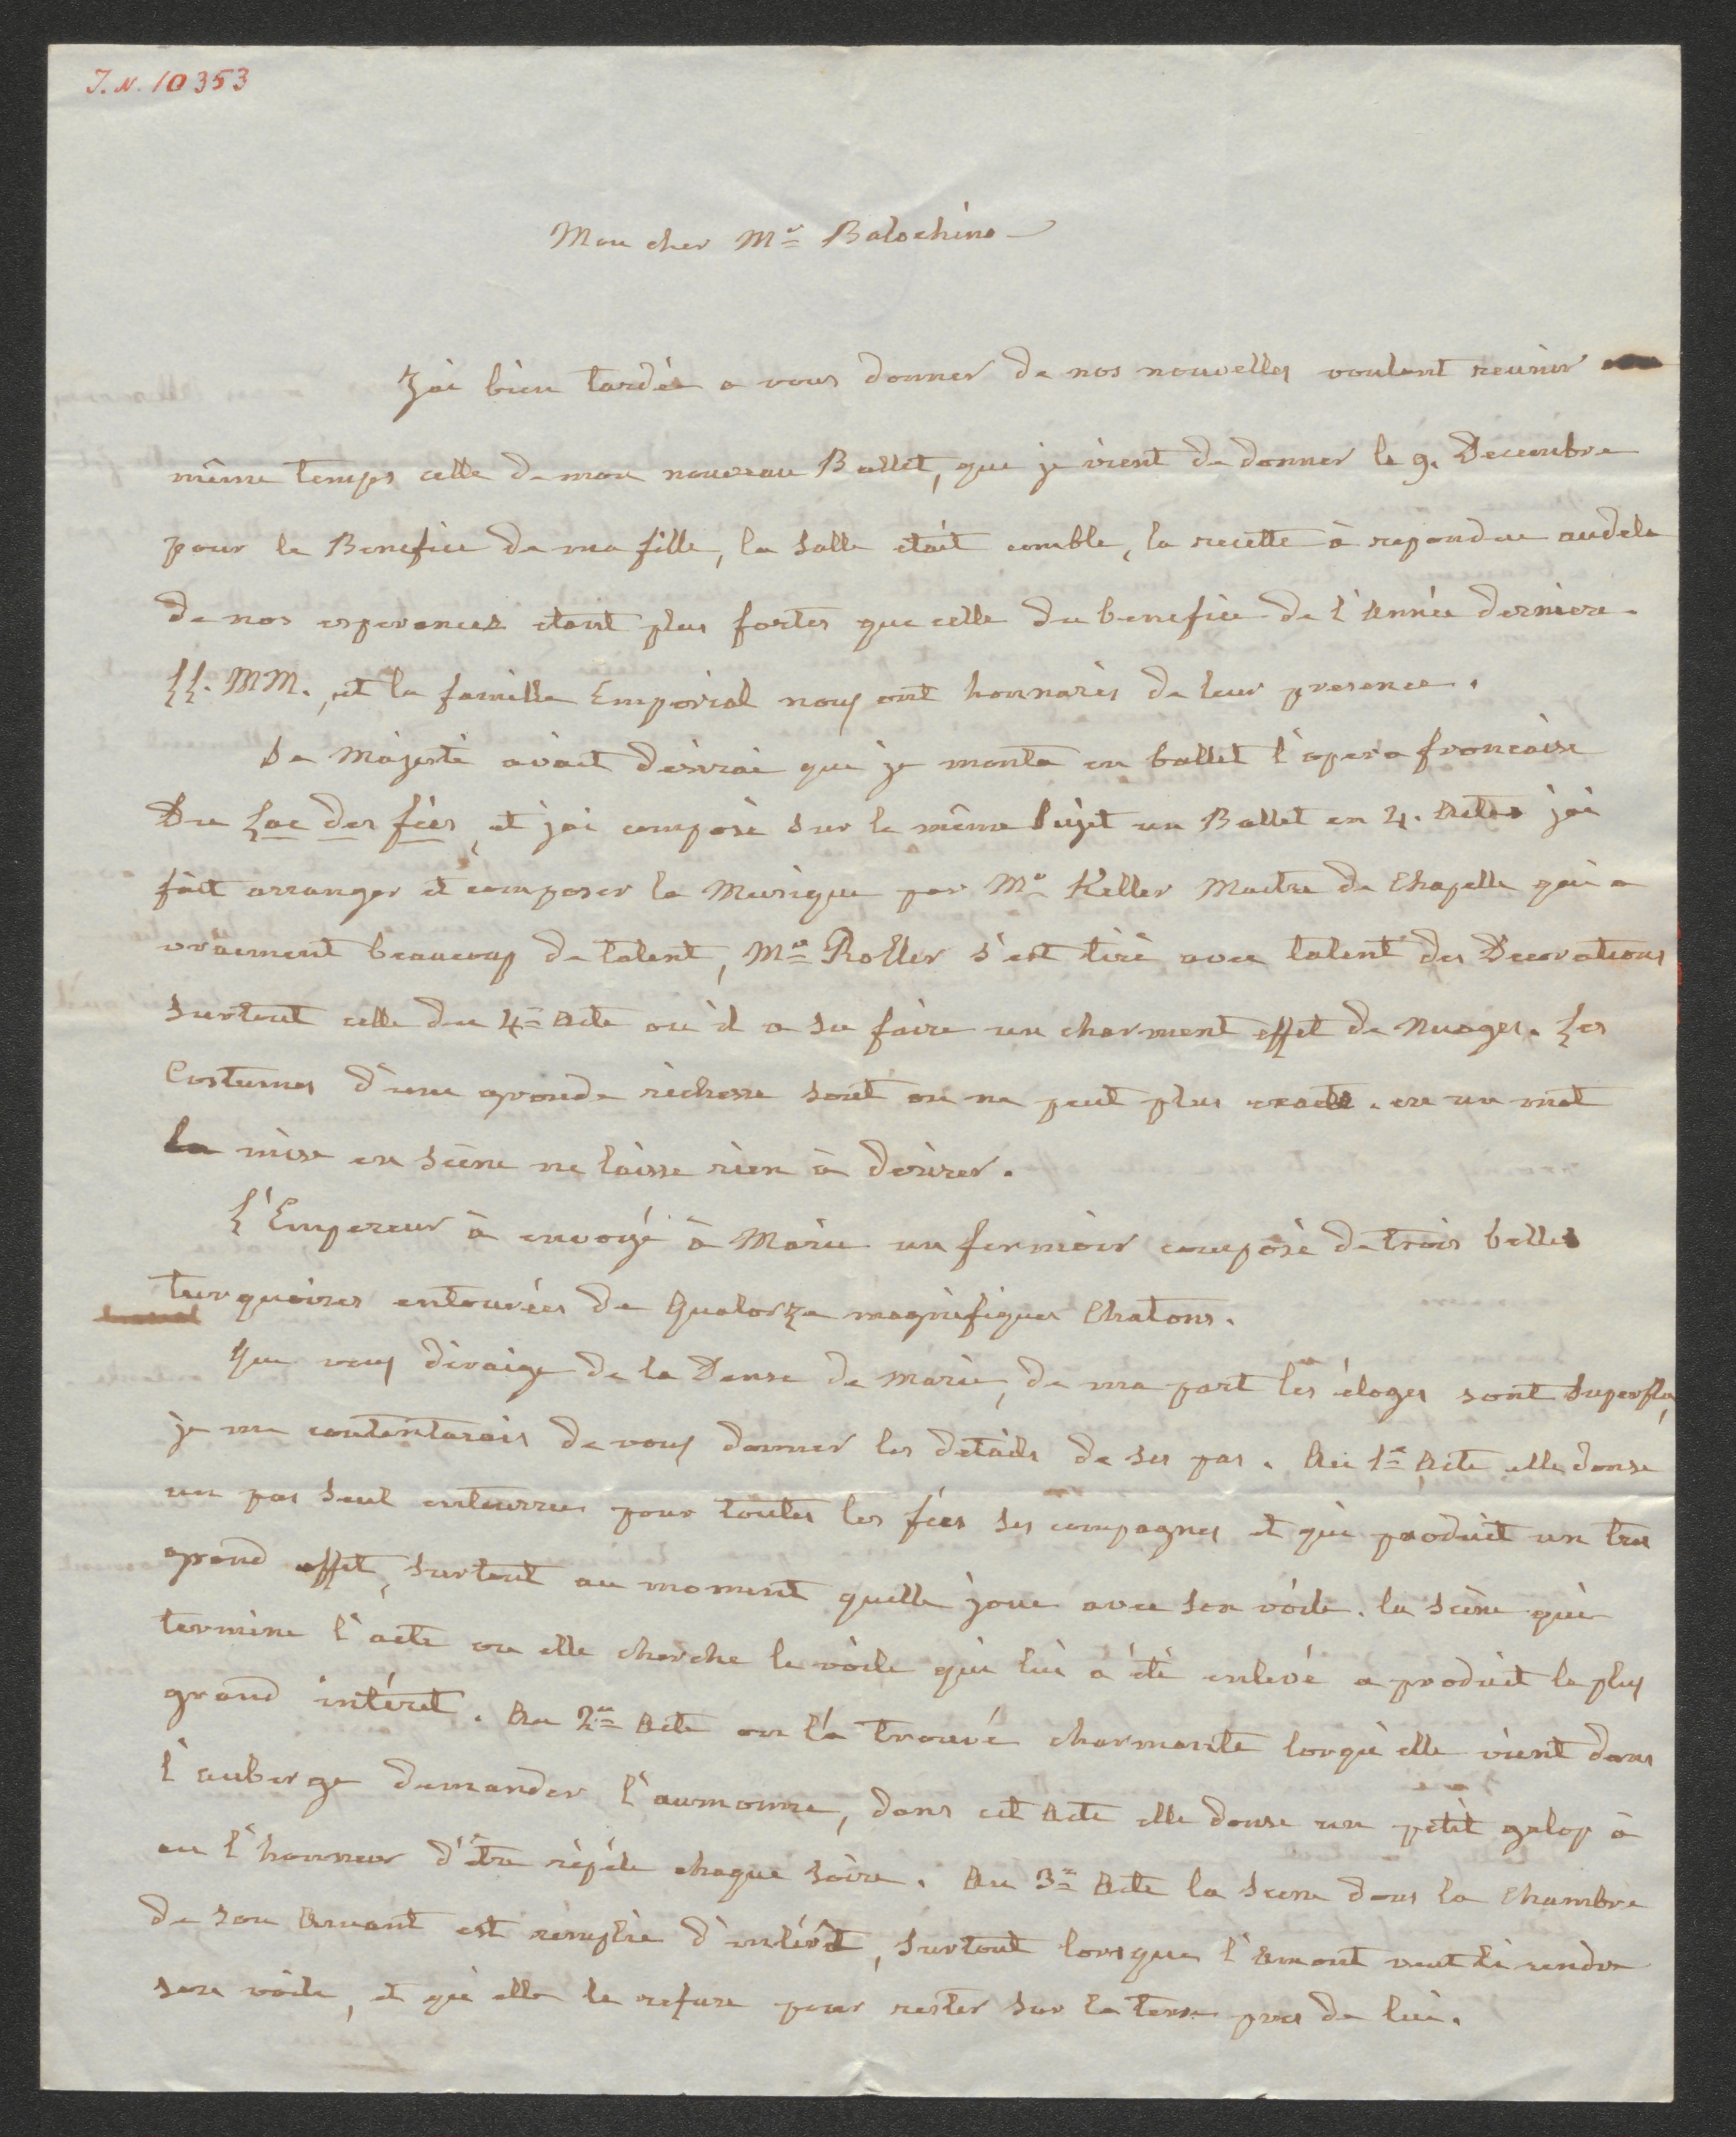 J. N. 10353
Mon cher Mr Balochino
J'ai bien tardée a vous donner de nos nouvelles voulant reunir
même temps celle de mon nouveau Ballet, que je vient de donner le 9. Decembre
pour le Benefice de ma fille, la Salle était comble, la recette à repondue audela
de nos esperances etant plus fortes que celle du benefice de l'Année derniere.
LL. MM., et la famille Emperial nous ont honnorés de leur presence.
Sa Majesté avait desirai que je monta en ballet l'opera francaise
Du Lac des fées, et j'ai composé sur le même Sujet un Ballet en 4. Actes j'ai
fait arranger et composer la Musique par Mr Keller Maitre de Chapelle qui a
vraiement beaucoup de talent, Mr Roller s'est tiré avec talent des Decorations
Surtout celle du 4me Acte ou il a su faire un charment effet de Nuages. Les
Costumes d'une grande richesse sont on ne peut plus exacts. en un mot
la mise en scène ne laisse rien à desirer.
L'Empereur à envoyé à Marie un fermoir composé de trois belles
turquoises entourées de Quatorze magnifiques Chatons.
Que vous diraige de la Danse de Marie, de ma part les éloges sont Superflu,
je me contentarais de vous donner les details de ses pas. Au 1er Acte elle danse
un pas Seul entourrue pour toutes les fées ses compagnes et qui produit un tres
grand effet, Surtout au moment quelle joue avec son voile. la scène qui
termine l'acte ou elle cherche le voile qui lui a été enlevé a produit le plus
grand intéret. Au 2me Acte on l'a trouvé charmante lorqu'elle vient dans
l'auberge demander l'aumonne, dans cet Acte elle danse un petit galop à
eu l'honneur d'être répété chaque soire. Au 3me Acte la Scene dans la Chambre
de son Amant est remplie d'intérêt, Surtout lorsque l'Amant veut li rendre
son voile, et qu'elle le refuse pour rester sur la terre pres de lui.